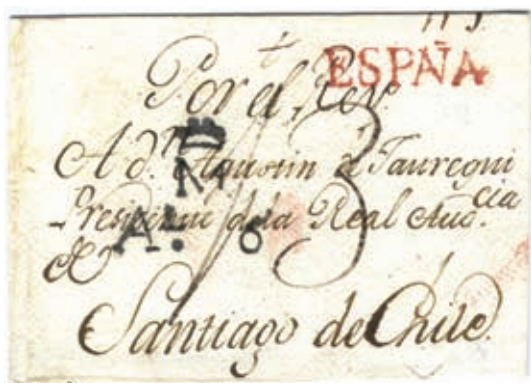 ESPAÑA
Por el Rey
A dn. Agustin de Jauregui
Presidente de la Real Audcia
de
Santiago de Chile
M
A: 6
13